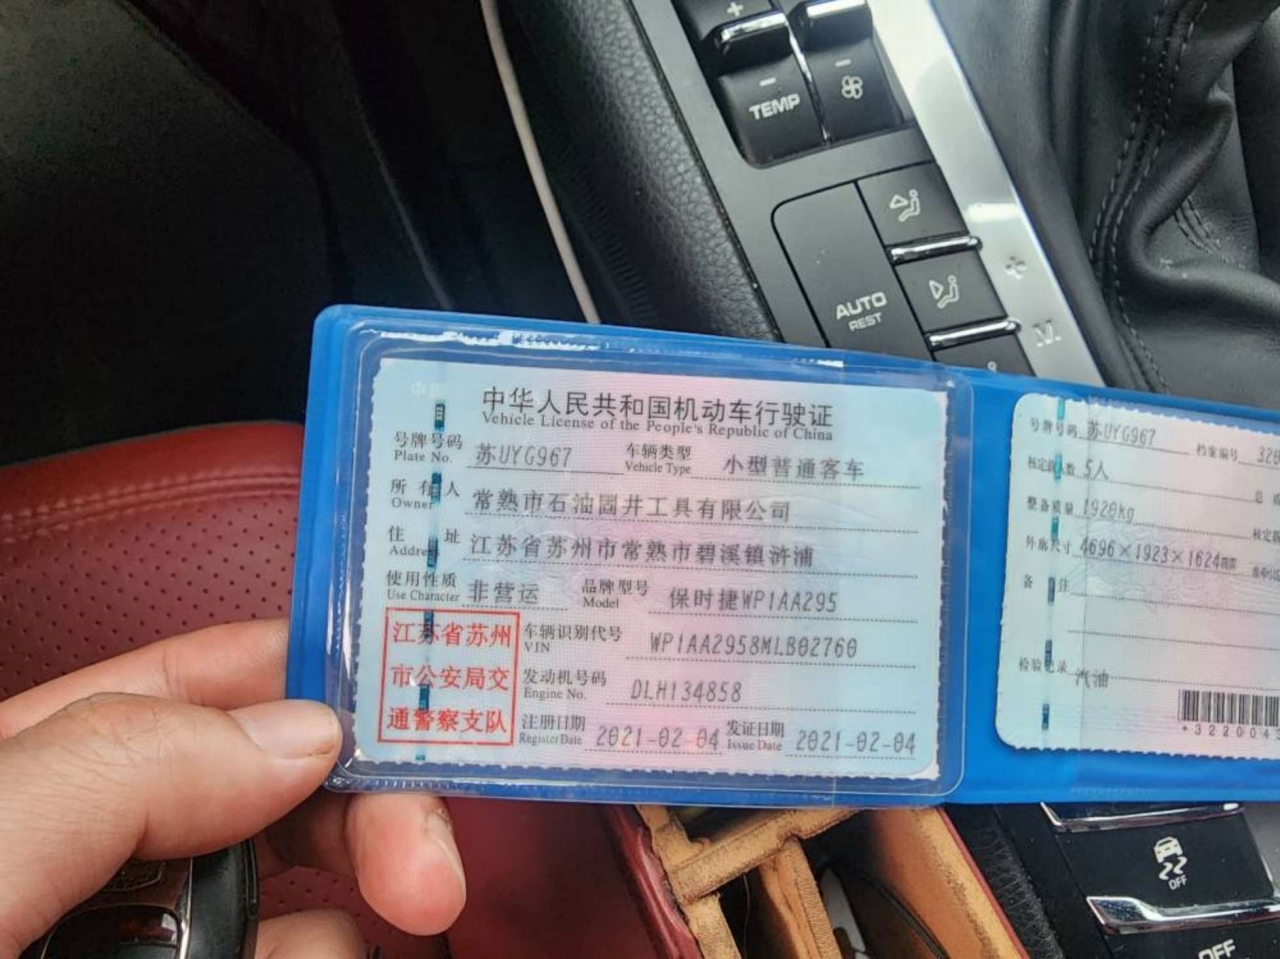 +
-
-
TEMP
AUTO
REST
中华人民共和国机动车行驶证
Vehicle License of the People's Republic of China
号牌号码 苏UYG967 车辆类型 小型普通客车
Plate No. Vehicle Type
所有人 常熟市石油固井工具有限公司
Owner
住 址 江苏省苏州市常熟市碧溪镇浒浦
Address
使用性质 非营运 品牌型号 保时捷WP1AA295
Use Character Model
江苏省苏州
市公安局交
通警察支队
车辆识别代号 WP1AA2958MLB02760
VIN
发动机号码 DLH134858
Engine No.
注册日期 2021-02-04 发证日期 2021-02-04
Register Date Issue Date
号牌号码 苏UYG967 档案编号 320
核定载人数 5人
整备质量 1920kg
外廓尺寸 4696×1923×1624
备 注
检验记录 汽油
*322004
+
M
OFF
OFF